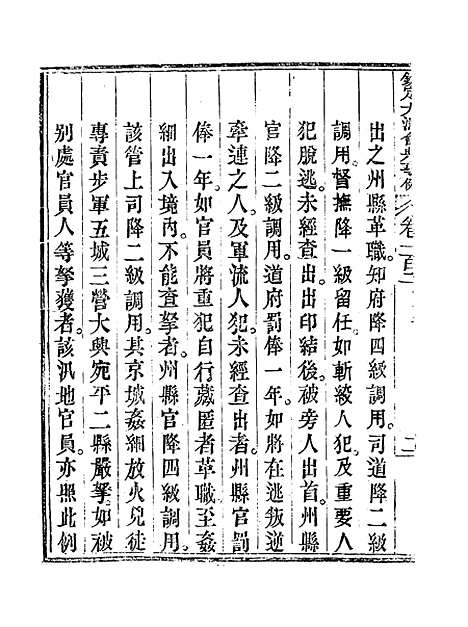 欽定大清會典事例 卷一百二
出之州縣革職。知府降四級調用。司道降二級
調用。督撫降一級留任。如斬絞人犯。及重要人
犯脫逃。未經查出。出印結後。被旁人出首。州縣
官降二級調用。道府罰俸一年。如將在逃叛逆
牽連之人。及軍流人犯。未經查出者。州縣官罰
俸一年。如官員將重犯自行藏匿者革職。至姦
細出入境內。不能查拏者。州縣官降四級調用。
該管上司降二級調用。其京城姦細放火兇徒
專責步軍五城三營大興宛平二縣嚴拏。如被
別處官員人等拏獲者。該汛地官員。亦照此例